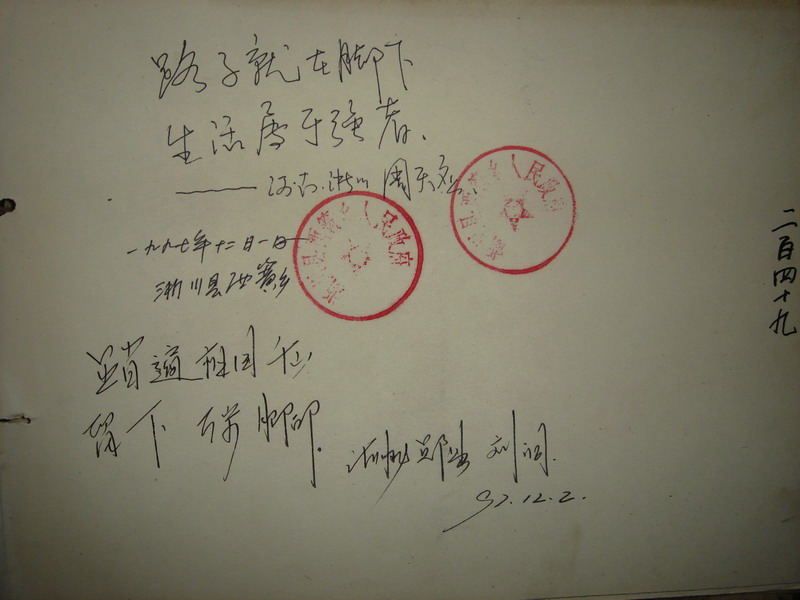 路子就在脚下
生活属于强者.
——河南.淅川 周天
一九九七年十二月一日
淅川县西簧乡
人民政府
人民政府
踏遍祖国千山
留下万岁脚印.
刘
97.12.2.
二百四十九